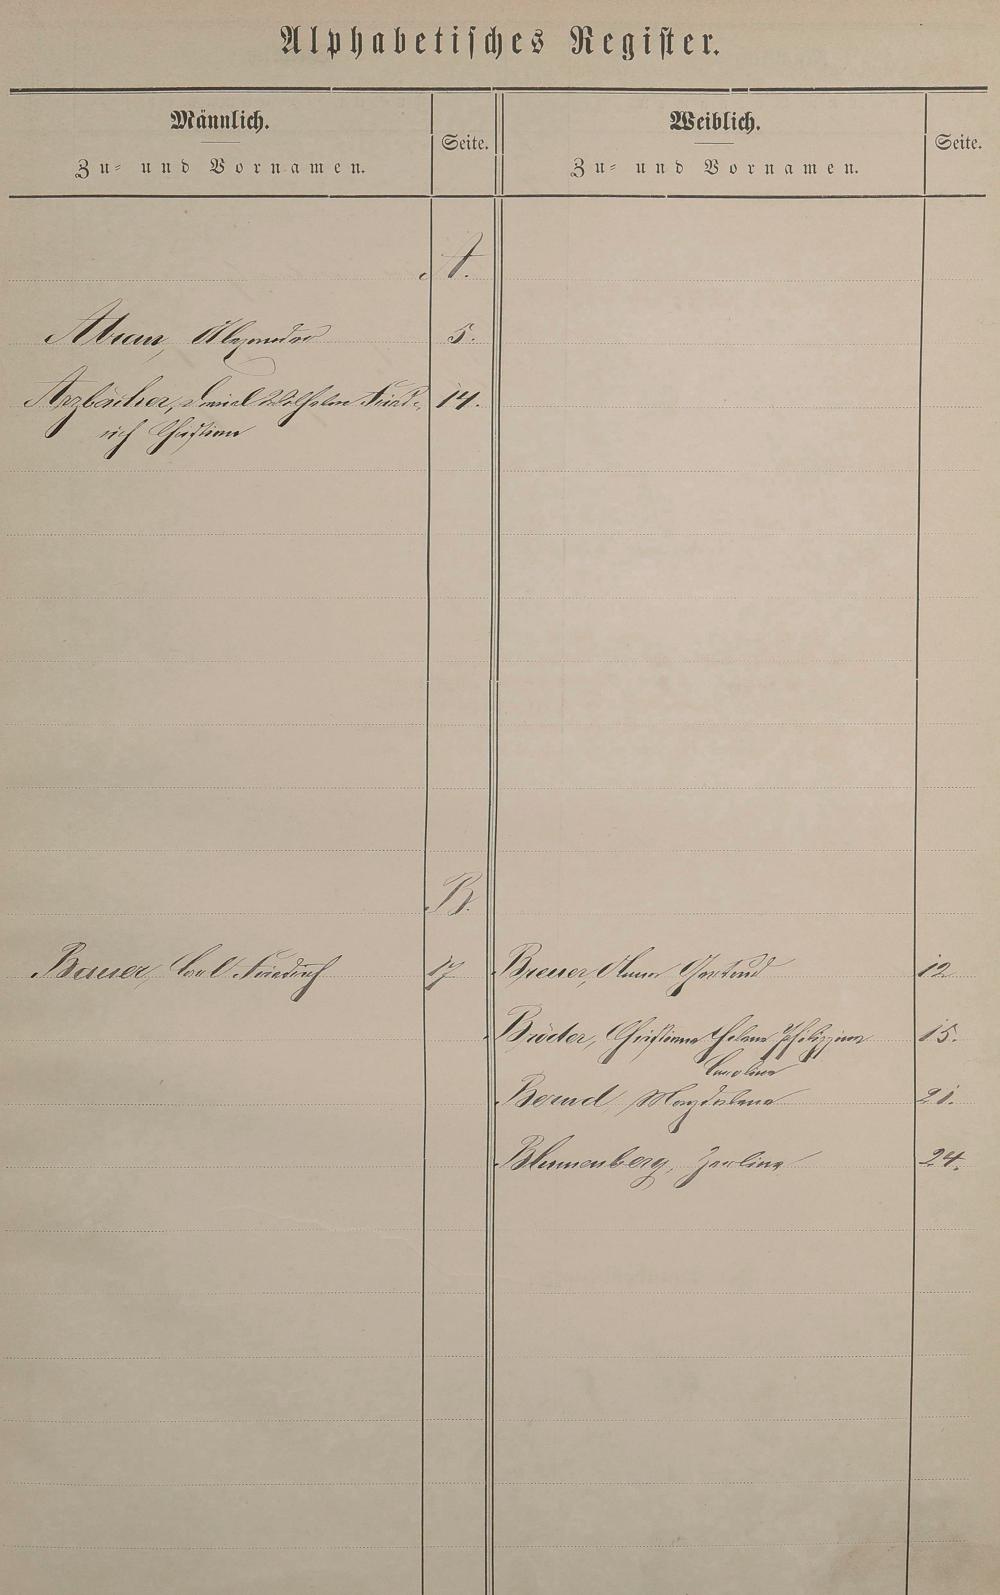 Alphabetisches Register.
Männlich.
Zu- und Vornamen.
Seite.
Weiblich.
Zu- und Vornamen.
Seite.
A.
Abum, Alexander 5.
Arzbächer, Daniel Wilhelm Fried- 14.
rich Christian
B.
Bauer, Carl Friedrich 17
Breuer, Anna Gertrud 12
Bröder, Christiane Helene Philippine 15.
Caroline
Bernd Magdalena 21.
Blumenberg, Zerline 24.